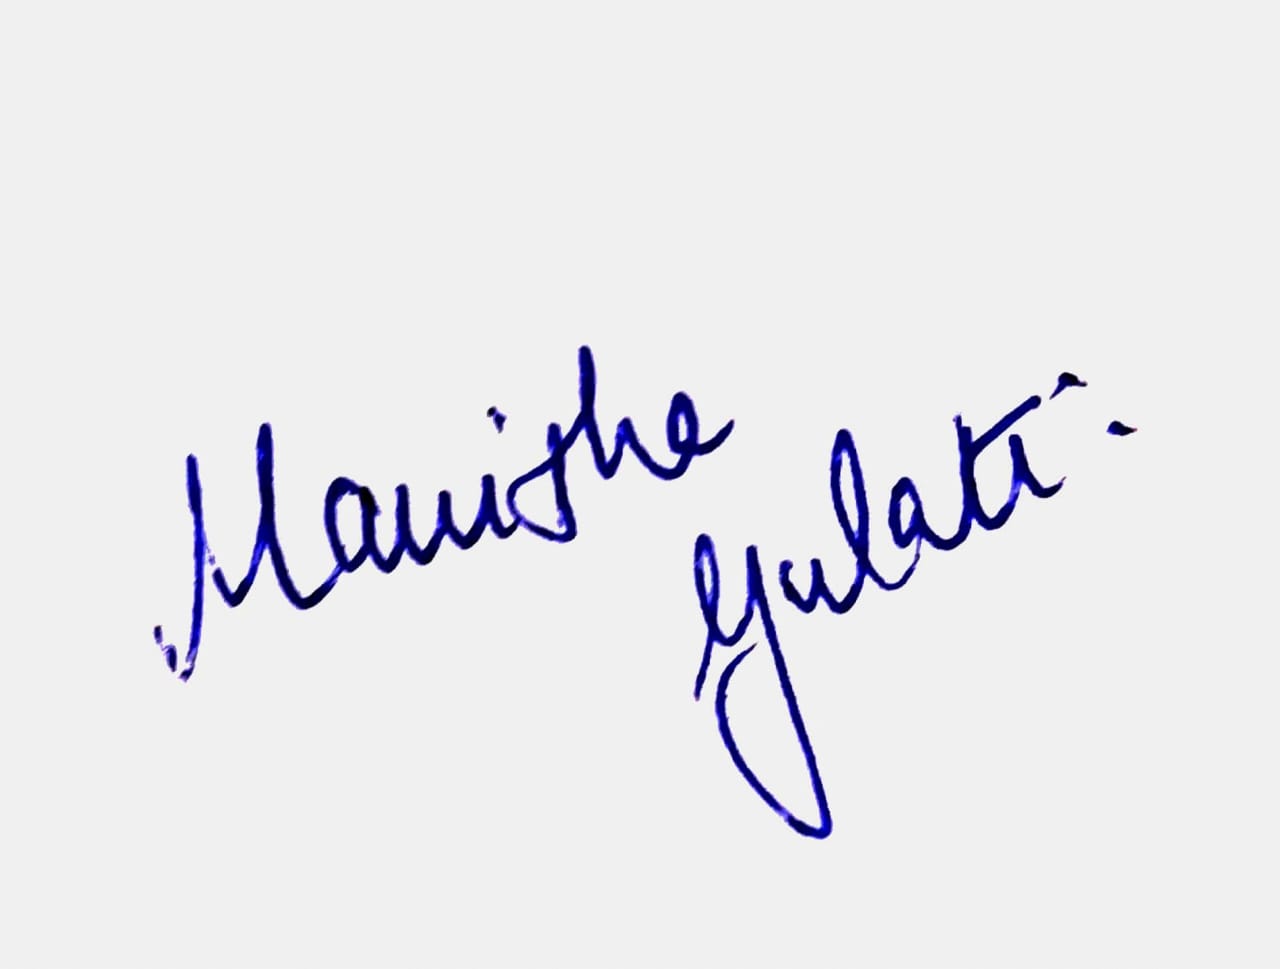 Manisha
Gulati